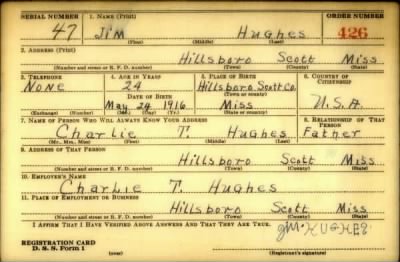 SERIAL NUMBER 1. NAME (Print) ORDER NUMBER
47 Jim Hughes 426
(First) (Middle) (Last)
2. ADDRESS (Print)
Hillsboro Scott Miss
(Number and street or R. F. D. number) (Town) (County) (State)
3. TELEPHONE 4. AGE IN YEARS 5. PLACE OF BIRTH 6. COUNTRY OF
None 24 Hillsboro Scott Co. CITIZENSHIP
DATE OF BIRTH (Town or county)
May 24 1916 Miss U.S.A.
(Exchange) (Number) (Mo.) (Day) (Yr.) (State or country)
7. NAME OF PERSON WHO WILL ALWAYS KNOW YOUR ADDRESS 8. RELATIONSHIP OF THAT
Charlie T. Hughes PERSON Father
(Mr., Mrs., Miss) (First) (Middle) (Last)
9. ADDRESS OF THAT PERSON
Hillsboro Scott Miss
(Number and street or R. F. D. number) (Town) (County) (State)
10. EMPLOYER'S NAME
Charlie T. Hughes
11. PLACE OF EMPLOYMENT OR BUSINESS
Hillsboro Scott Miss
(Number and street or R. F. D. number) (Town) (County) (State)
I AFFIRM THAT I HAVE VERIFIED ABOVE ANSWERS AND THAT THEY ARE TRUE.
REGISTRATION CARD
D. S. S. Form 1
(over) (Registrant's signature)